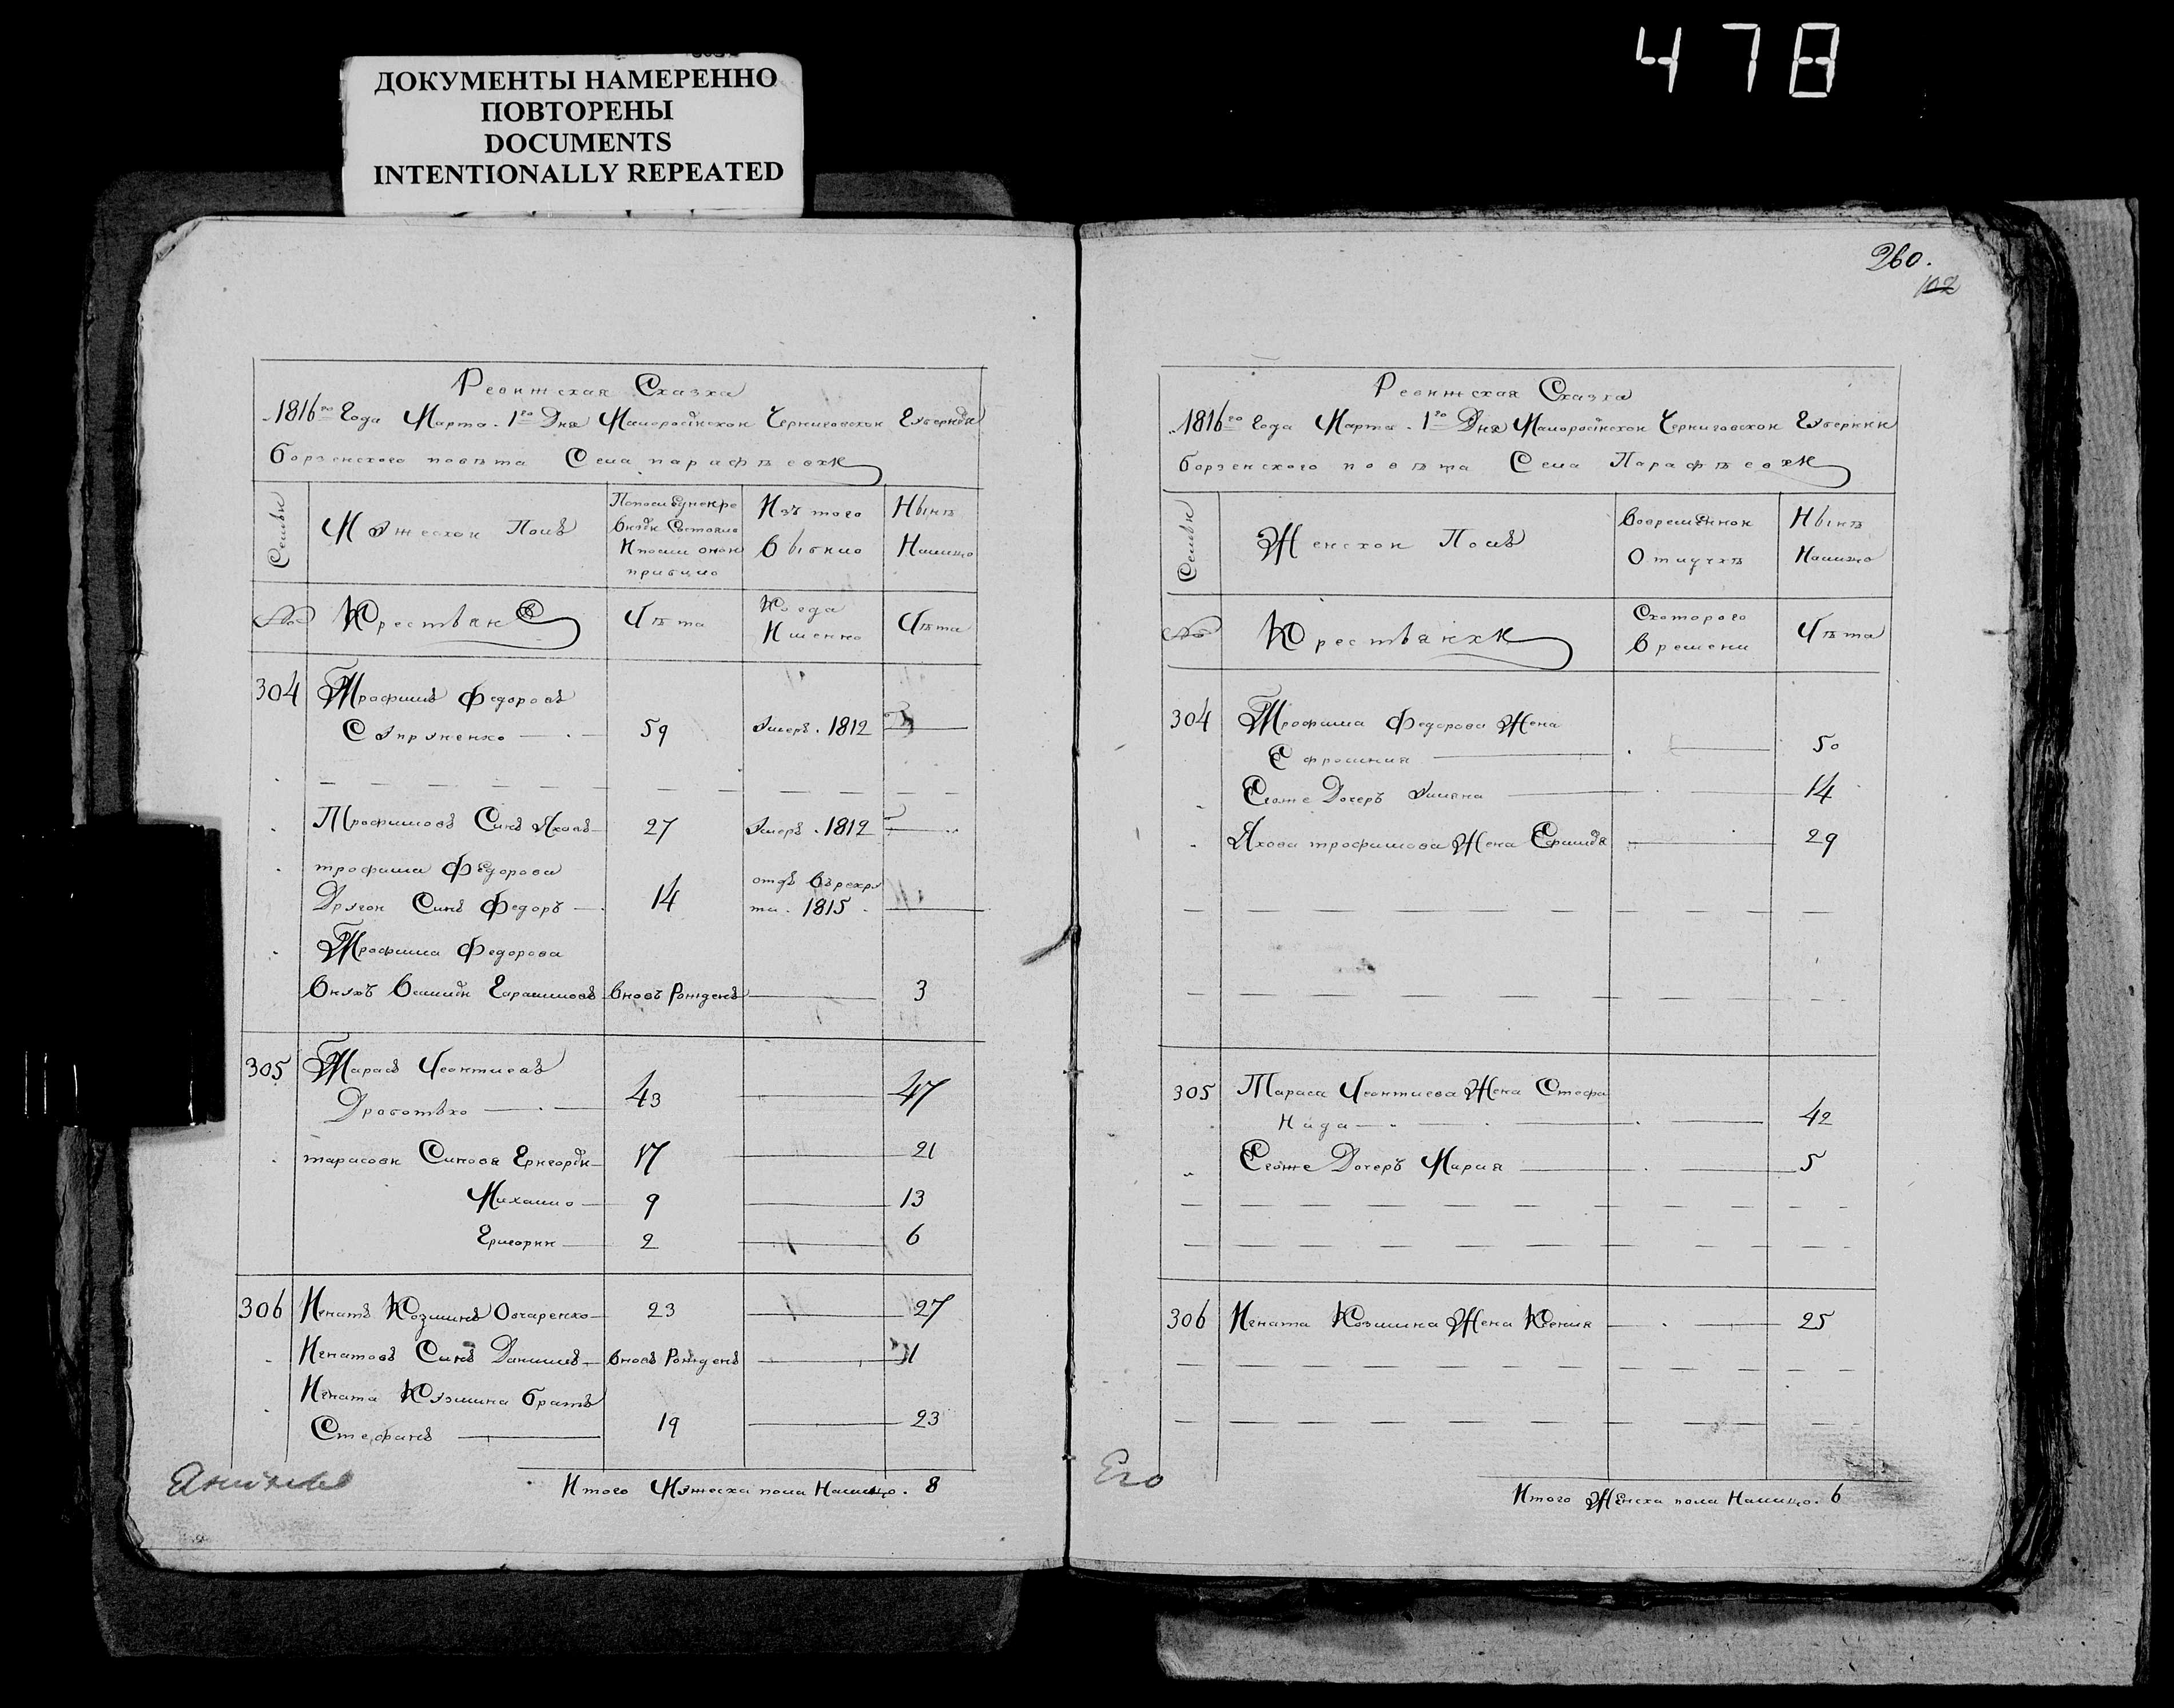 478
ДОКУМЕНТЫ НАМЕРЕННО
ПОВТОРЕНЫ
DOCUMENTS
INTENTIONALLY REPEATED
Ревижская Сказка
1816го Года Марта 1го Дня Малоросійской Черниговской Губерніи
борзенского повѣта Села парафѣевки
Семьи
Мужеской Полъ
По последней ре
визіи Состояло
И после оной
прибыло
Изъ того
Выбыло
Нынѣ
Налицо
№
Крестьяне
Лѣта
Когда
Именно
Лѣта
304
Трофимъ Федоровъ
Супруненко
59
Умеръ. 1812
Трофимовъ Синъ Яковъ
27
Умеръ. 1812
трофима Федорова
Другой Синъ Федоръ
14
отдъ Въ рекру
та. 1815
Трофима Федорова
Внукъ Василій Гарасимовъ
вновъ Рожденъ
3
305
Тарасъ Леонтиевъ
Работько
43
47
тарасови Синовя Григорій
17
21
Михайло
9
13
Григорий
2
6
306
Игнатъ Козминъ Овчаренко
23
27
Игнатовъ Синъ Данилъ
вновъ Рожденъ
1
Игната Кузмина братъ
Стефанъ
19
23
Итого Мужеска пола Налицо. 8
260.
102
Ревижская Сказка
1816го Года Марта 1го Дня Малоросійской Черниговской Губернии
борзенского повѣта Села Парафѣевки
Семьи
Женской Полъ
Во временной
Отлучкѣ
Нынѣ
Налицо
№
Крестьянки
Скоторого
Времени
Лѣта
304
Трофима Федорова Жена
Ефросиния
50
Егоже Дочеръ Улияна
14
Якова трофимова Жена Ефимія
29
305
Тараса Леонтиева Жена Стефа
Нида
42
Егоже Дочеръ Мария
5
306
Игната Козмина Жена Ксения
25
Его
Итого Женска пола Налицо. 6